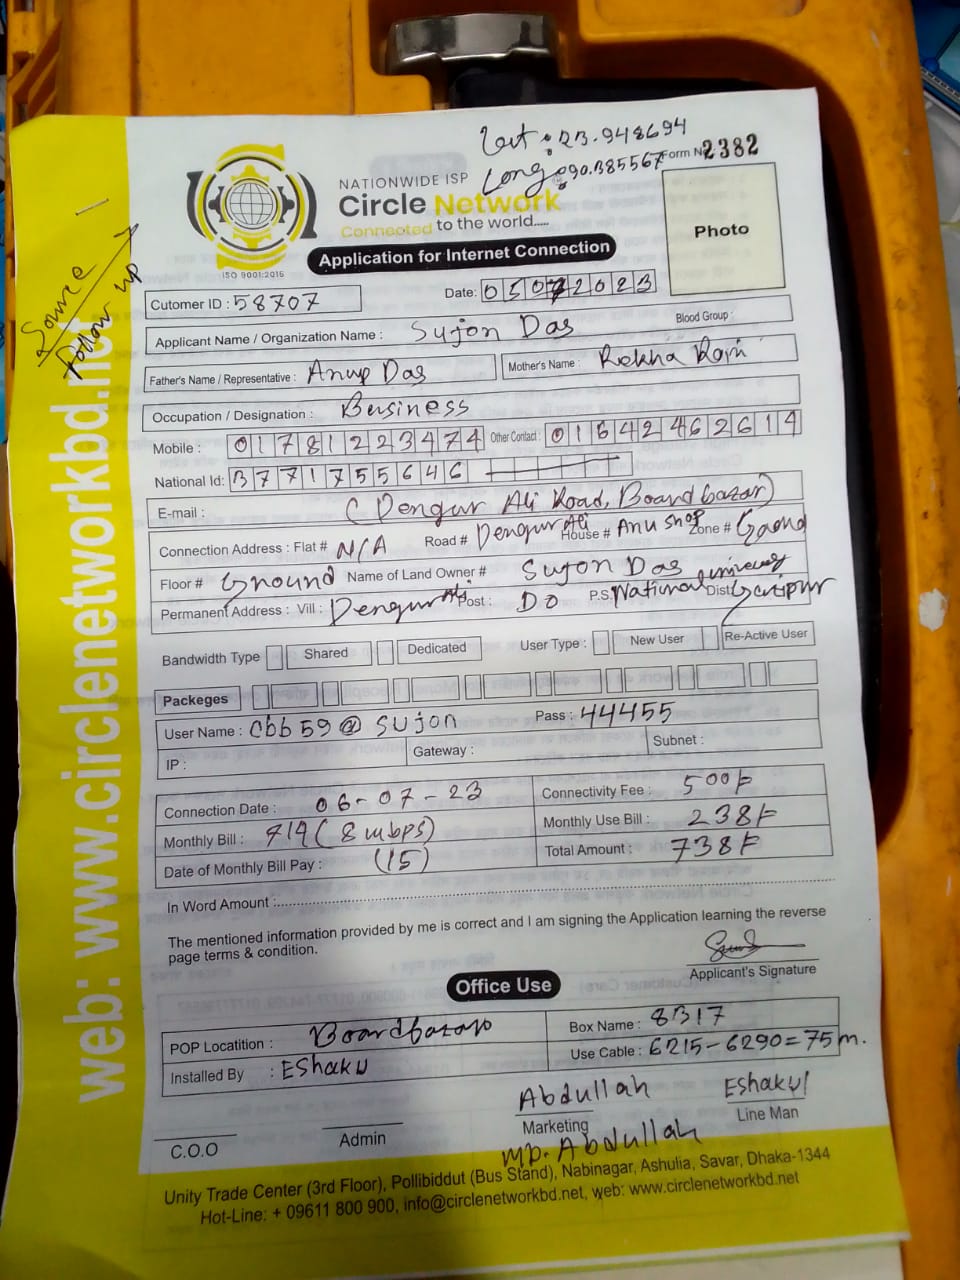 Lat: 23.948694
Long: 90.385567
Form No 2382
NATIONWIDE ISP
Circle Network
Connected to the world.....
ISO 9001:2015
Application for Internet Connection
Photo
Source
Follow up
web: www.circlenetworkbd.net
Cutomer ID : 58707
Date: 05072023
Applicant Name / Organization Name : Sujon Das
Blood Group :
Father's Name / Representative : Anup Das
Mother's Name : Rekha Rani
Occupation / Designation : Business
Mobile : 01781223474 Other Contact : 01642462614
National Id: 3771755646
E-mail : (Dengur Ali Road, Boardbazar)
Connection Address : Flat # N/A Road # Dengur Ali House # Anu Shop Zone #
Floor # Ground Name of Land Owner # Sujon Das
Permanent Address : Vill : Dengur Ali Post : DO P.S. National University Dist Gazipur
Bandwidth Type Shared Dedicated User Type : New User Re-Active User
Packeges
User Name : cbb59@sujon Pass : 44455
IP : Gateway : Subnet :
Connection Date : 06-07-23 Connectivity Fee : 500/-
Monthly Bill : 714 (8 mbps) Monthly Use Bill : 238/-
Date of Monthly Bill Pay : (15) Total Amount : 738/-
In Word Amount :
The mentioned information provided by me is correct and I am signing the Application learning the reverse
page terms & condition.
Applicant's Signature
Office Use
POP Locatition : Boardbazar Box Name : 8317
Installed By : Eshaku Use Cable : 6215-6290=75m.
Abdullah Eshakul
C.O.O Admin Marketing Line Man
MD. Abdullah
Unity Trade Center (3rd Floor), Pollibiddut (Bus Stand), Nabinagar, Ashulia, Savar, Dhaka-1344
Hot-Line: + 09611 800 900, info@circlenetworkbd.net, web: www.circlenetworkbd.net